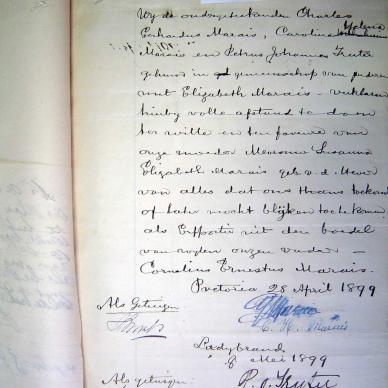 Wy de ondergeteekenden Charles
Gerhardus Marais, Carolina Helena
Marais en Petrus Johannes Truter
gehuwd in gemeenschap van goederen
met Elizabeth Marais - verklaren
hierby volle afstand te doen
ter wille en ten faveure van
onze moeder Mevrouw Susanna
Elizabeth Marais geb v. d. Hever
van alles dat ons thans toekomt
of later mocht blijken toe te komen
als Erfportie uit den boedel
van wylen onzen vader -
Cornelius Ernestus Marais.
Pretoria 28 April 1899
Als Getuigen
C. H. Marais
Ladybrand
8 Mei 1899
Als getuigen
P. J. Truter